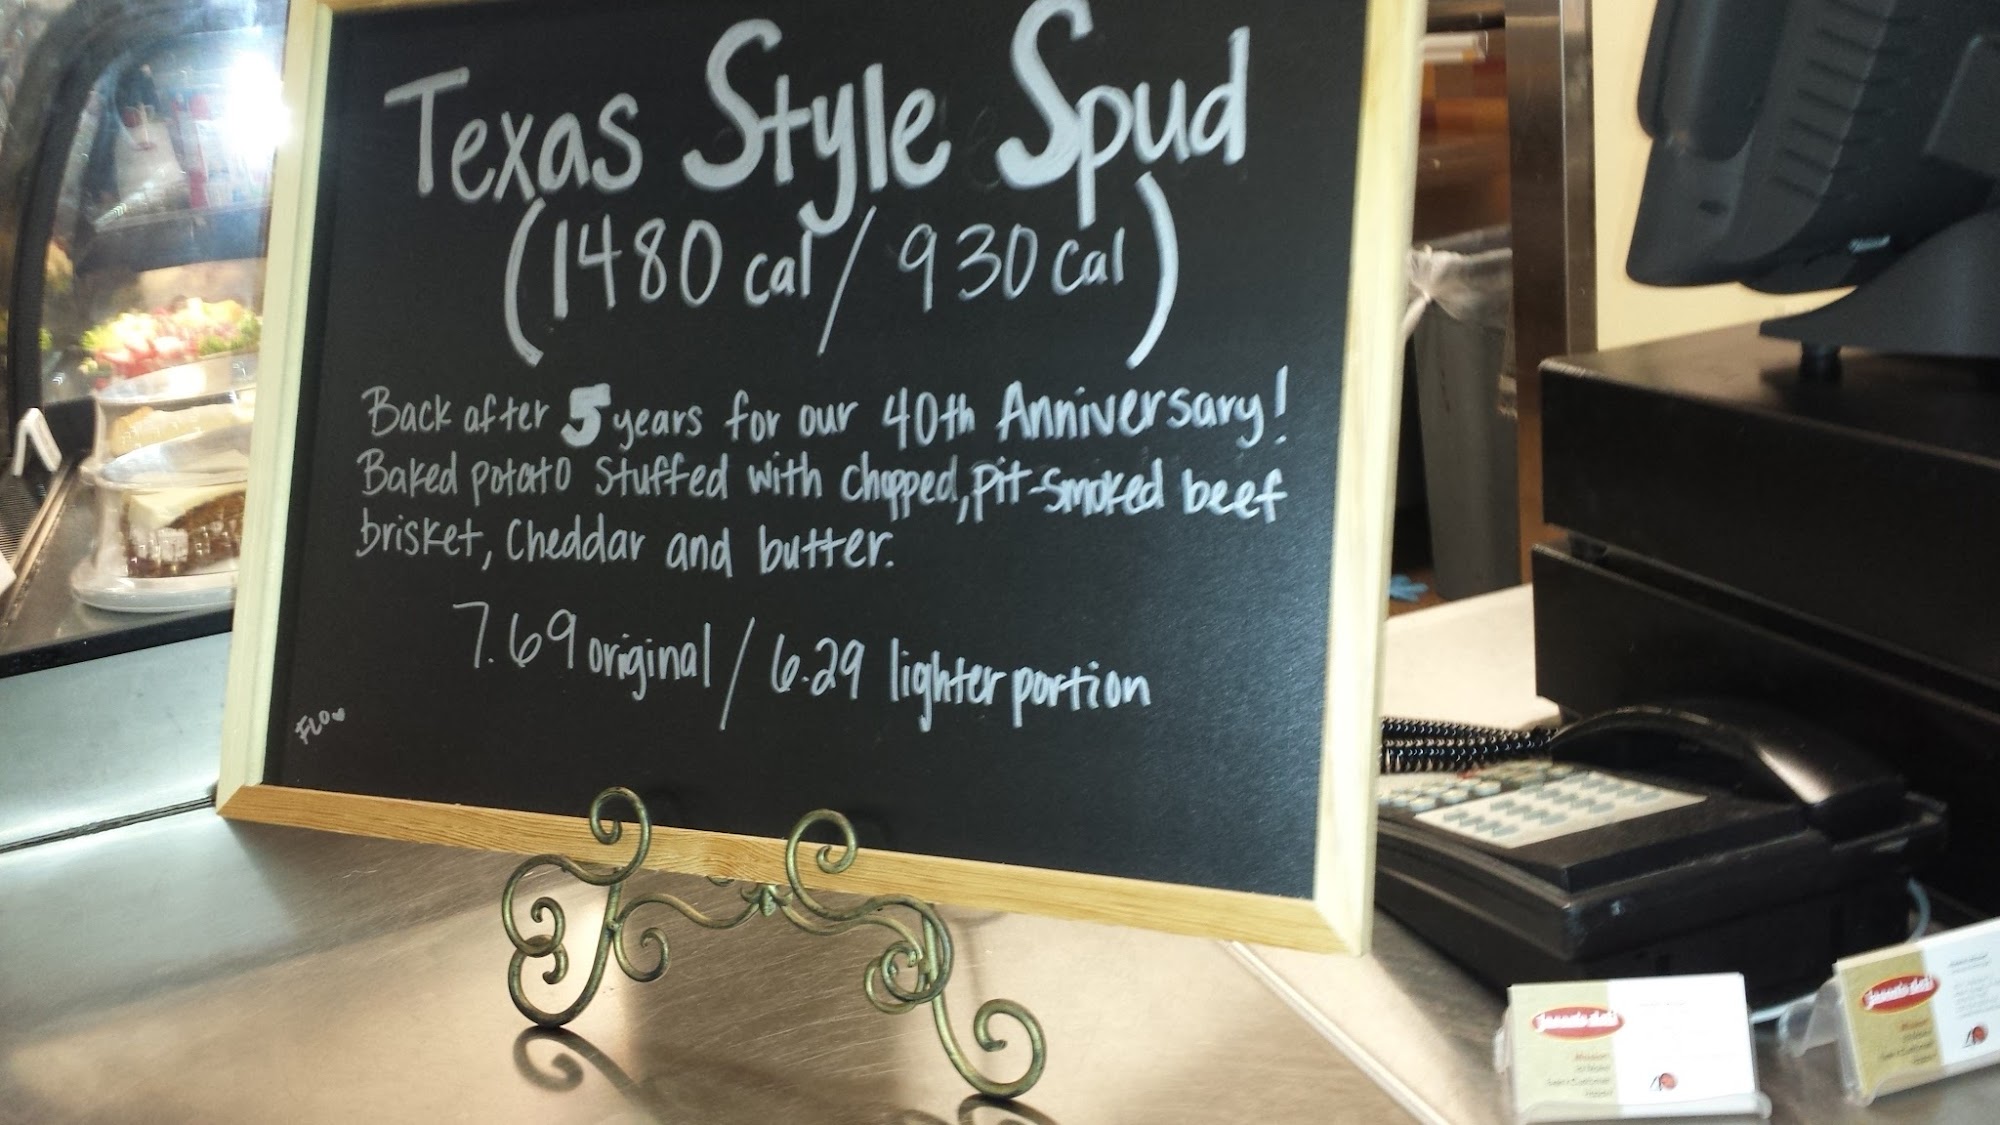 Texas Style Spud
(1480 cal / 930 cal)
Back after 5 years for our 40th Anniversary!
Baked potato stuffed with chopped, pit-smoked beef
brisket, Cheddar and butter.
7.69 original / 6.29 lighter portion
FLO
Jason's deli
Jason's deli